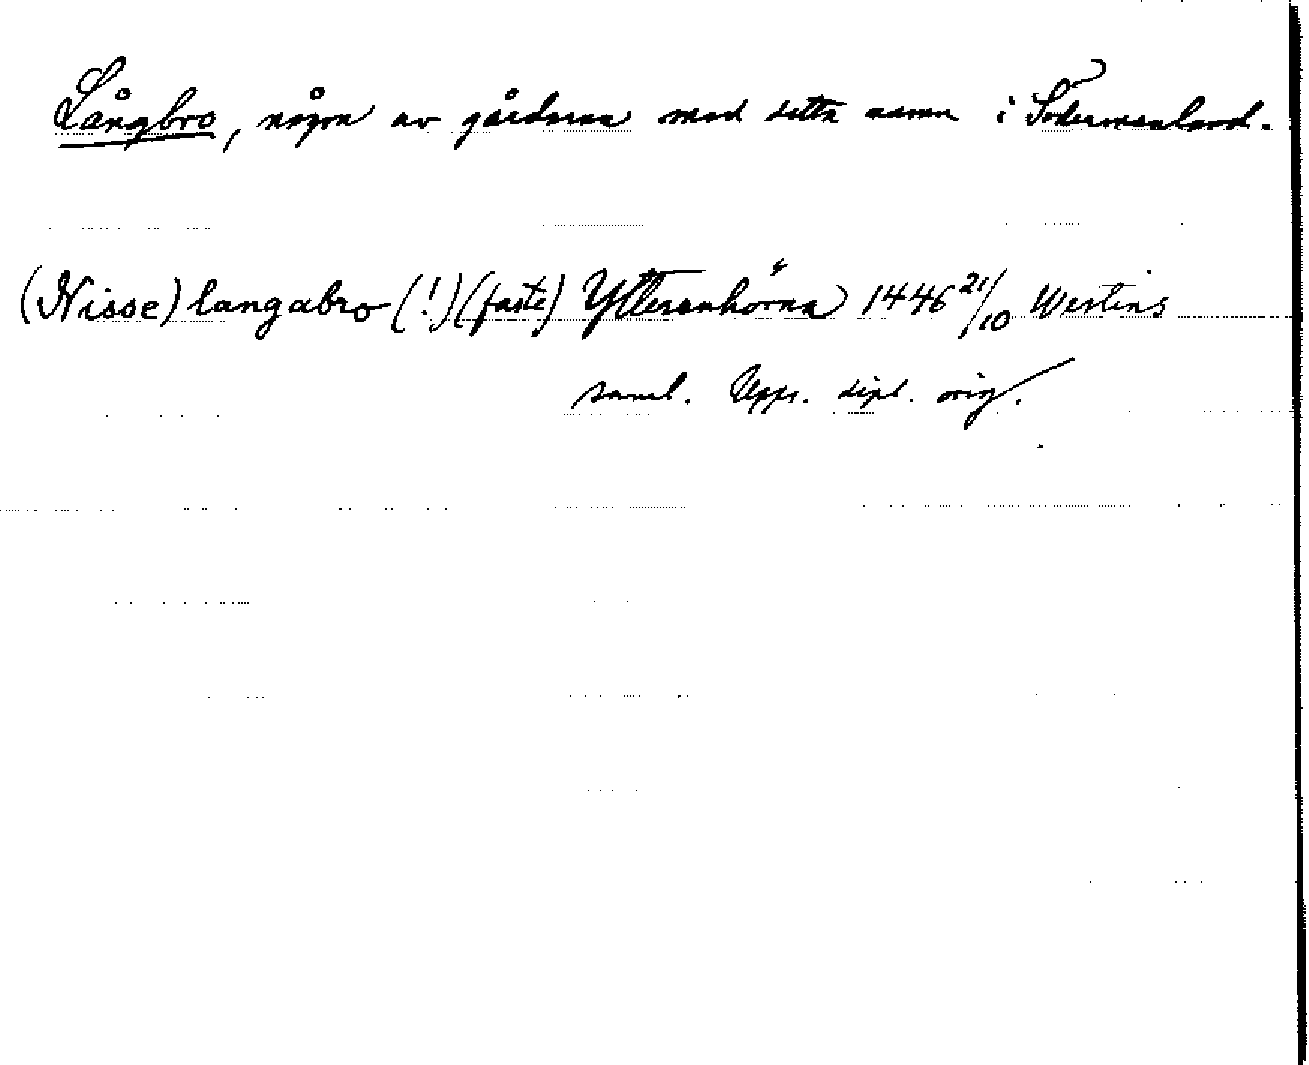 Långbro, någon av gårdarna med detta namn i Södermanland.
(Nisse) langabro (!) (faste) Ytterenhörna 1446 21/10 Westins
saml. Upps. dipl. orig.